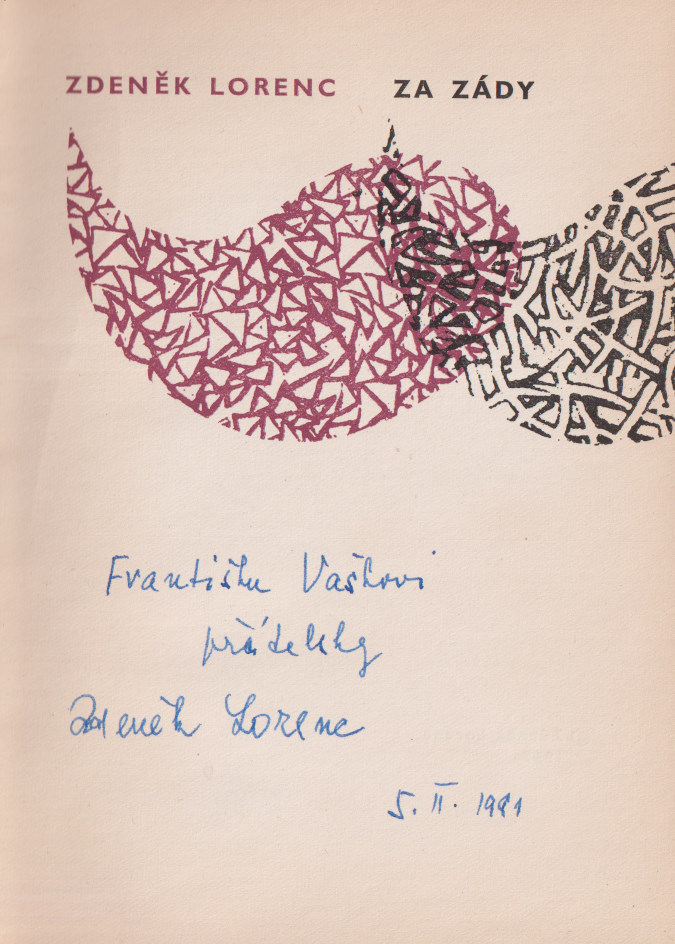 ZDENĚK LORENC ZA ZÁDY
Františku Vaškovi
přátelsky
Zdeněk Lorenc
5. II. 1981